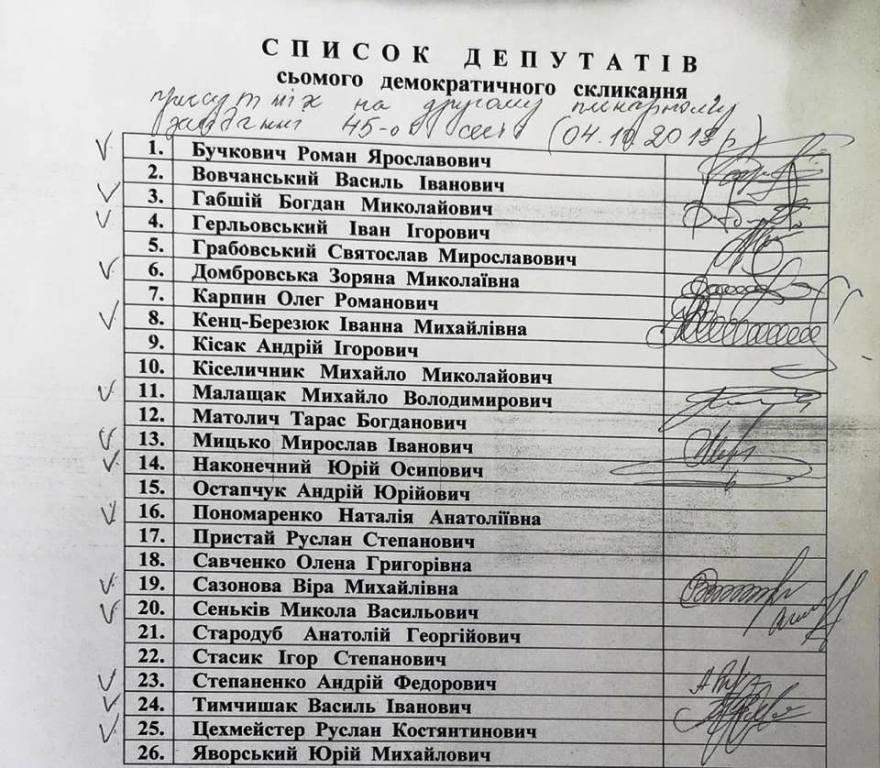 СПИСОК ДЕПУТАТІВ
сьомого демократичного скликання
присутніх на другому пленарному
засіданні 45-ої сесії (04.10.2018р)
1. Бучкович Роман Ярославович
2. Вовчанський Василь Іванович
3. Габшій Богдан Миколайович
4. Герльовський Іван Ігорович
5. Грабовський Святослав Мирославович
6. Домбровська Зоряна Миколаївна
7. Карпин Олег Романович
8. Кенц-Березюк Іванна Михайлівна
9. Кісак Андрій Ігорович
10. Кіселичник Михайло Миколайович
11. Малащак Михайло Володимирович
12. Матолич Тарас Богданович
13. Мицько Мирослав Іванович
14. Наконечний Юрій Осипович
15. Остапчук Андрій Юрійович
16. Пономаренко Наталія Анатоліївна
17. Пристай Руслан Степанович
18. Савченко Олена Григорівна
19. Сазонова Віра Михайлівна
20. Сеньків Микола Васильович
21. Стародуб Анатолій Георгійович
22. Стасик Ігор Степанович
23. Степаненко Андрій Федорович
24. Тимчишак Василь Іванович
25. Цехмейстер Руслан Костянтинович
26. Яворський Юрій Михайлович